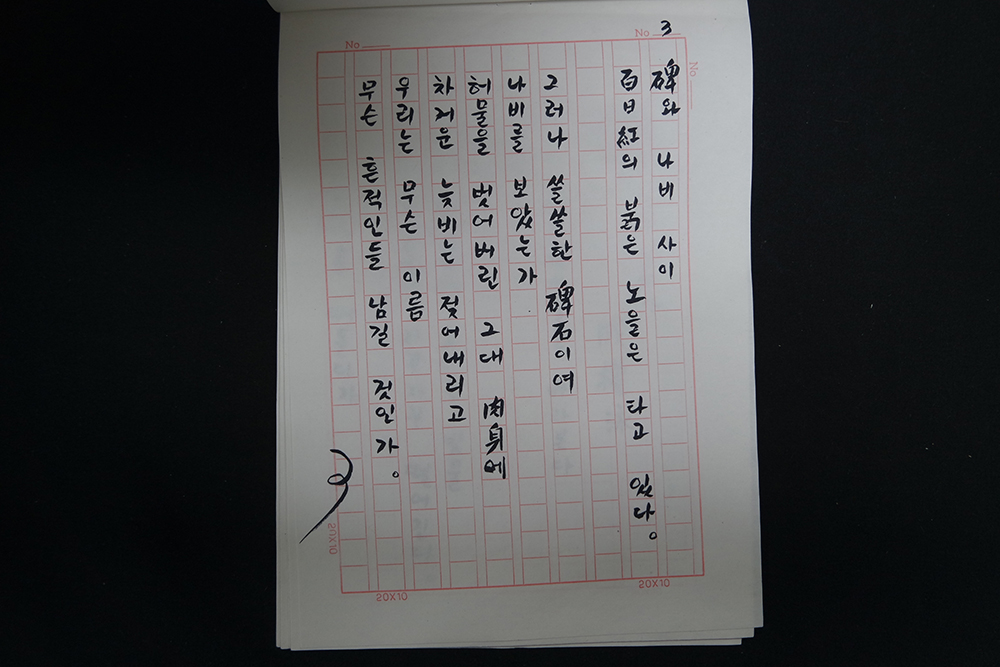 No 3
No
No
碑와 나비 사이
百日紅의 붉은 노을은 타고 있다。
그러나 쓸쓸한 碑石이여
나비를 보았는가
허물을 벗어버린 그대 肉身에
차거운 늦비는 젖어내리고
우리는 무슨 이름
무슨 흔적인들 남길 것인가。
20X10
20X10
20X10